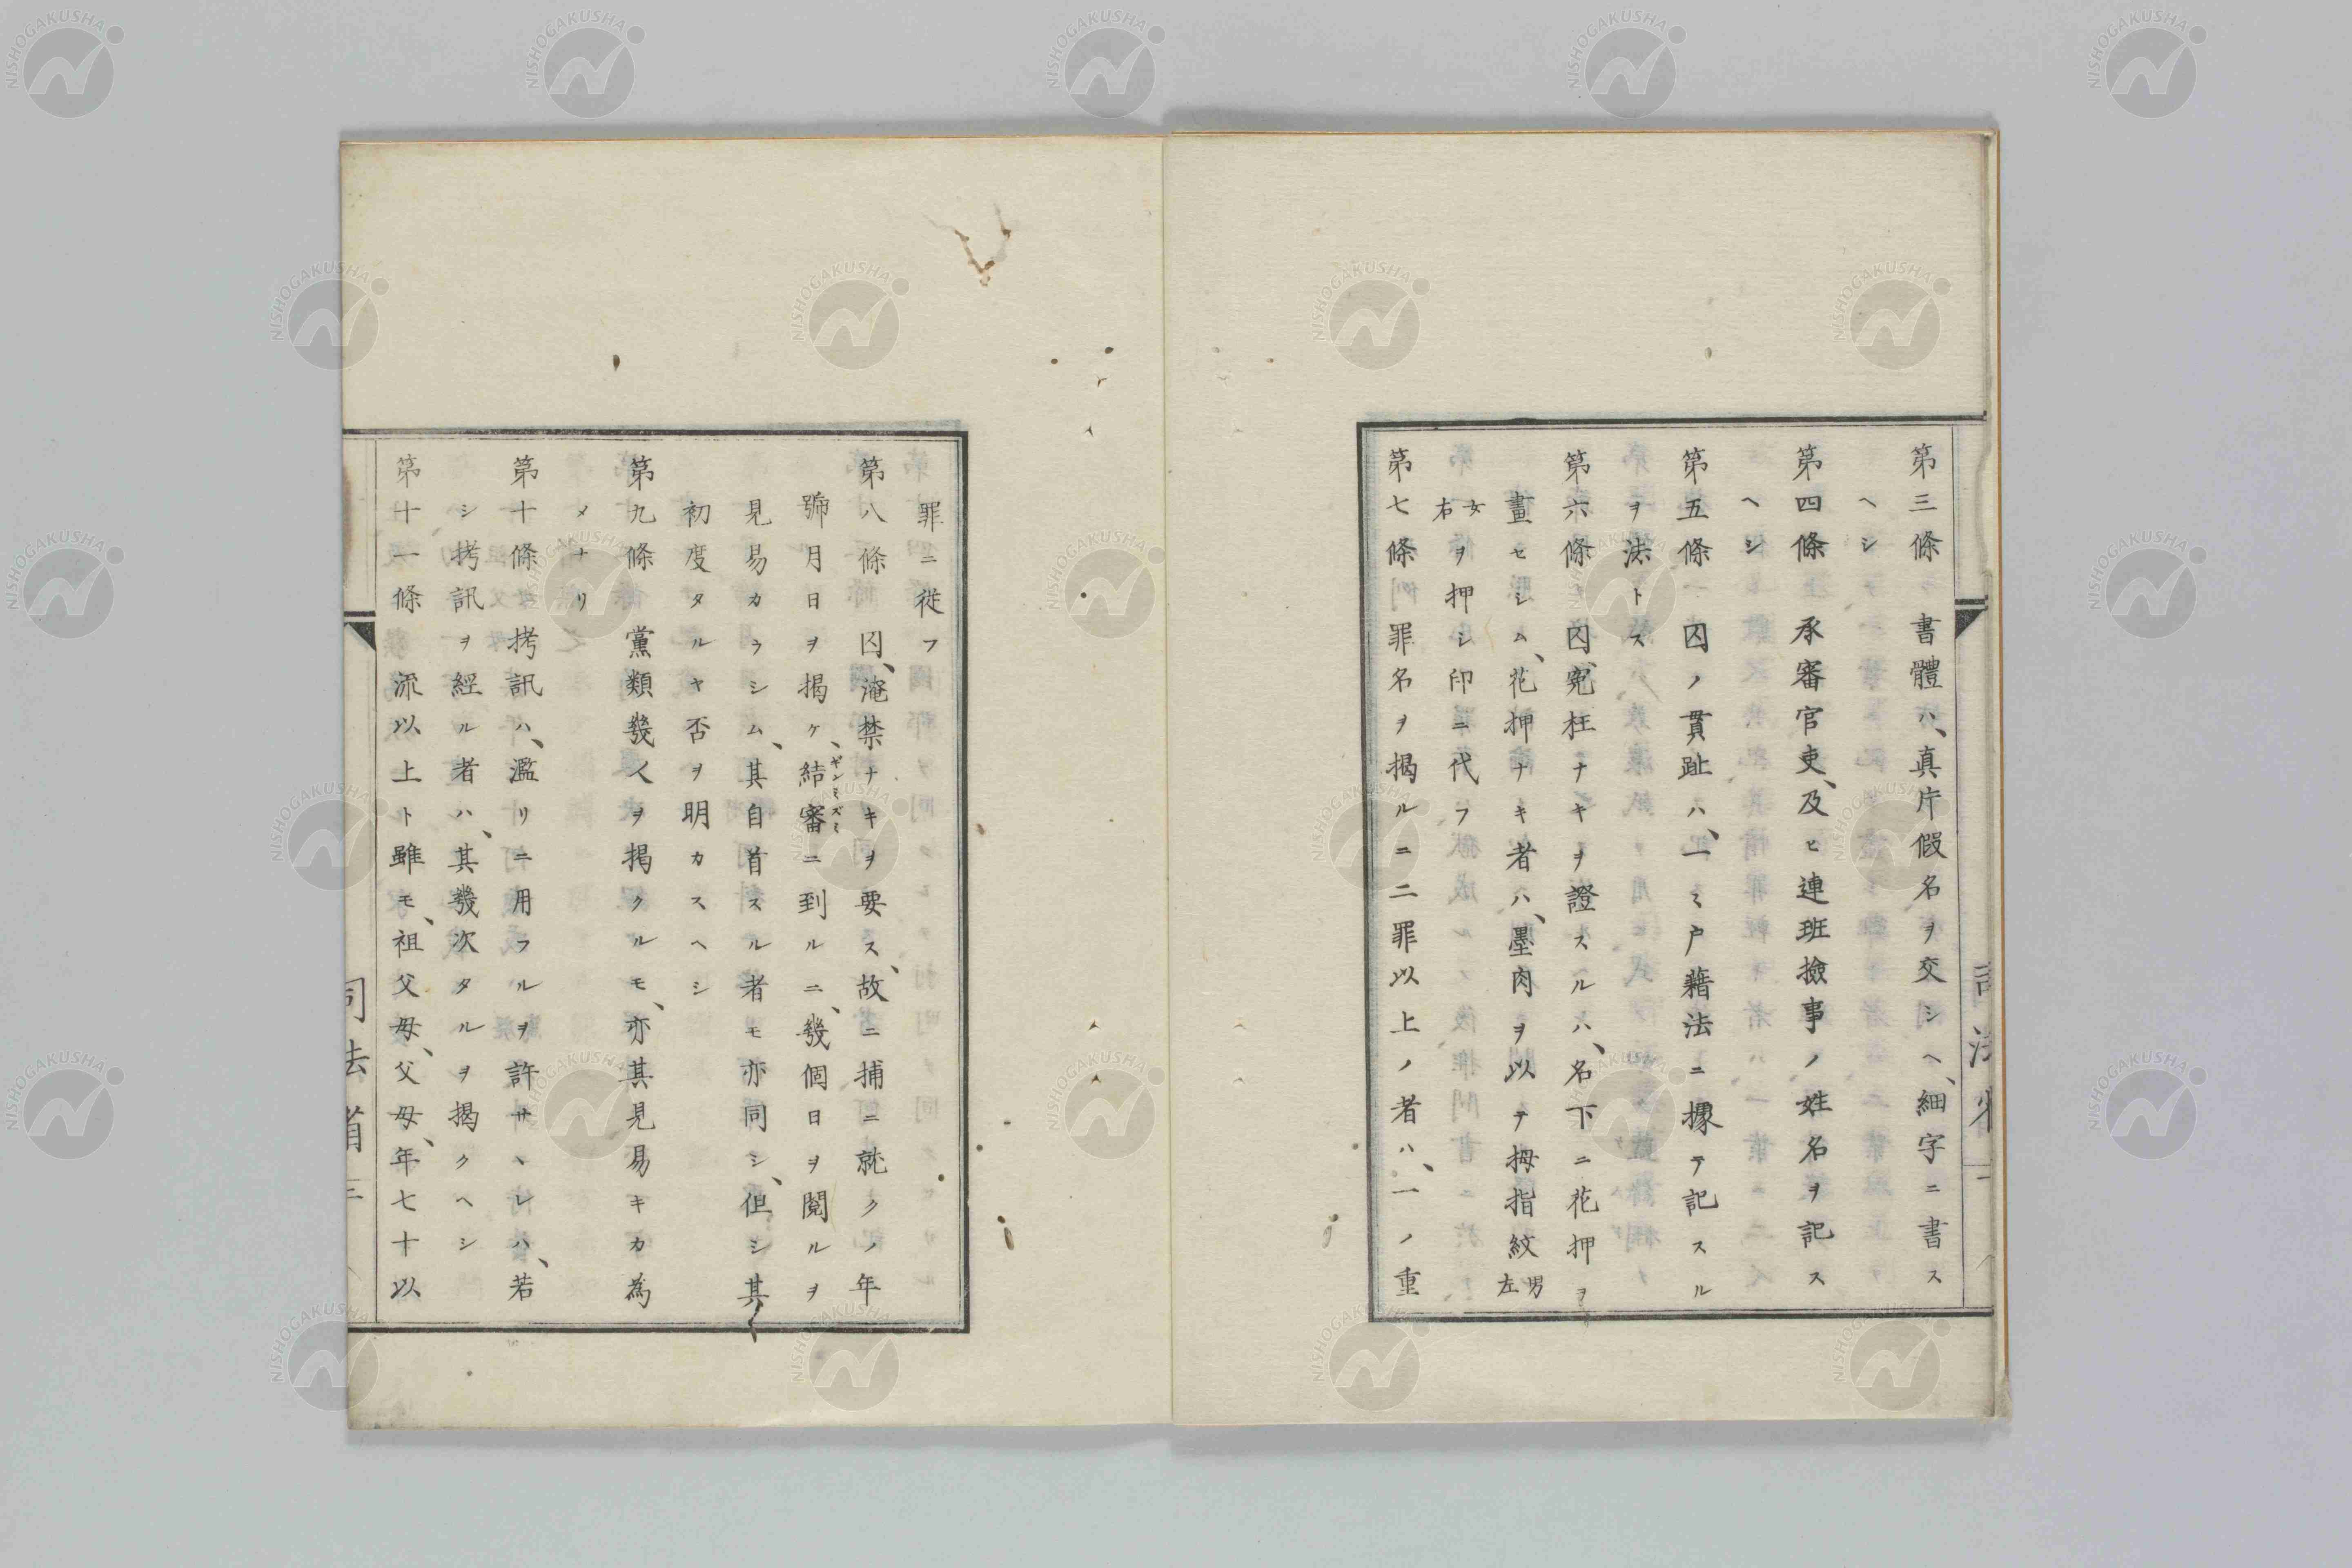 第三條 書體ハ、真片假名ヲ交シヘ、細字ニ書ス
ヘシ
第四條 承審官吏、及ヒ連班撿事ノ姓名ヲ記ス
ヘシ
第五條 囚ノ貫趾ハ、一ミ戸藉法ニ據テ記スル
ヲ法トス
第六條 囚、寃枉ナキヲ證スルハ、名下ニ花押ヲ
畫セシム、花押ナキ者ハ、墨肉ヲ以テ拇指紋男左
女右ヲ押シ印ニ代フ
第七條 罪名ヲ揭ルニ二罪以上ノ者ハ、一ノ重
罪ニ從フ
第八條 囚、淹禁ナキヲ要ス、故ニ捕ニ就クノ年
號月日ヲ揭ケ、結審ギンミズミニ到ルニ、幾個日ヲ閱ルヲ
見易カラシム、其自首スル者モ亦同シ、但シ其
初度タルヤ否ヲ明カスヘシ
第九條 黨類幾人ヲ揭クルモ、亦其見易キカ為
メナリ
第十條 拷訊ハ、濫リニ用フルヲ許サヽレハ、若
シ拷訊ヲ經ル者ハ、其幾次タルヲ揭クヘシ
第十一條 流以上ト雖モ、祖父母、父母、年七十以
司法省
三
NISHOGAKUSHA